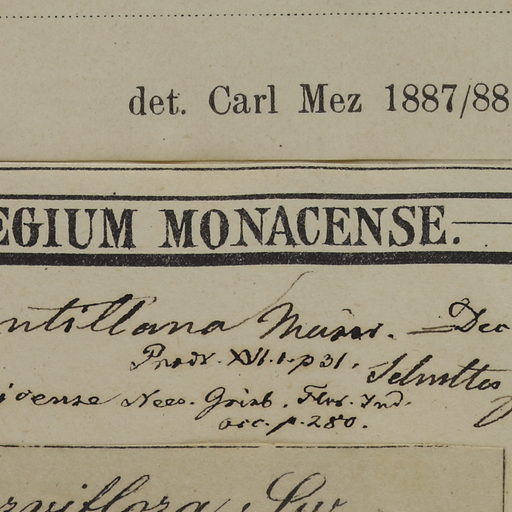 det. Carl Mez 1887/88
EGIUM MONACENSE.
ntillana Meissn. = Dec
Prodr. XV.1.p 31. Schultes
icense Nees. Griseb. Flor. Ind.
occ. p. 280.
rviflora, Sw